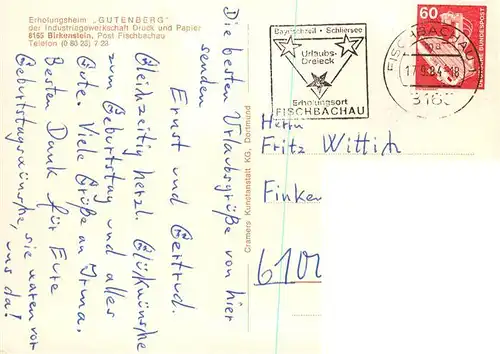 Erholungsheim „GUTENBERG“
der Industriegewerkschaft Druck und Papier
8165 Birkenstein, Post Fischbachau
Telefon (0 80 28) 7 23
Die besten Urlaubsgrüße von hier
senden
Ernst und Gertrud.
Gleichzeitig herzl. Glückwünsche
zum Geburtstag und alles
Gute. Viele Grüße an Irma.
Besten Dank für Eure
Geburtstagswünsche, sie waren vor
uns da!
Cramers Kunstanstalt KG, Dortmund
Bayrischzell · Schliersee
Urlaubs-
Dreieck
Erholungsort
FISCHBACHAU
FISCHBACHAU
17.9.84-18
8165
60
DEUTSCHE BUNDESPOST
Herrn
Fritz Wittich
Finken
610